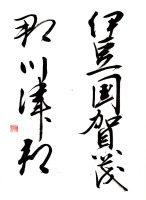 伊豆国賀茂
郡川津郷